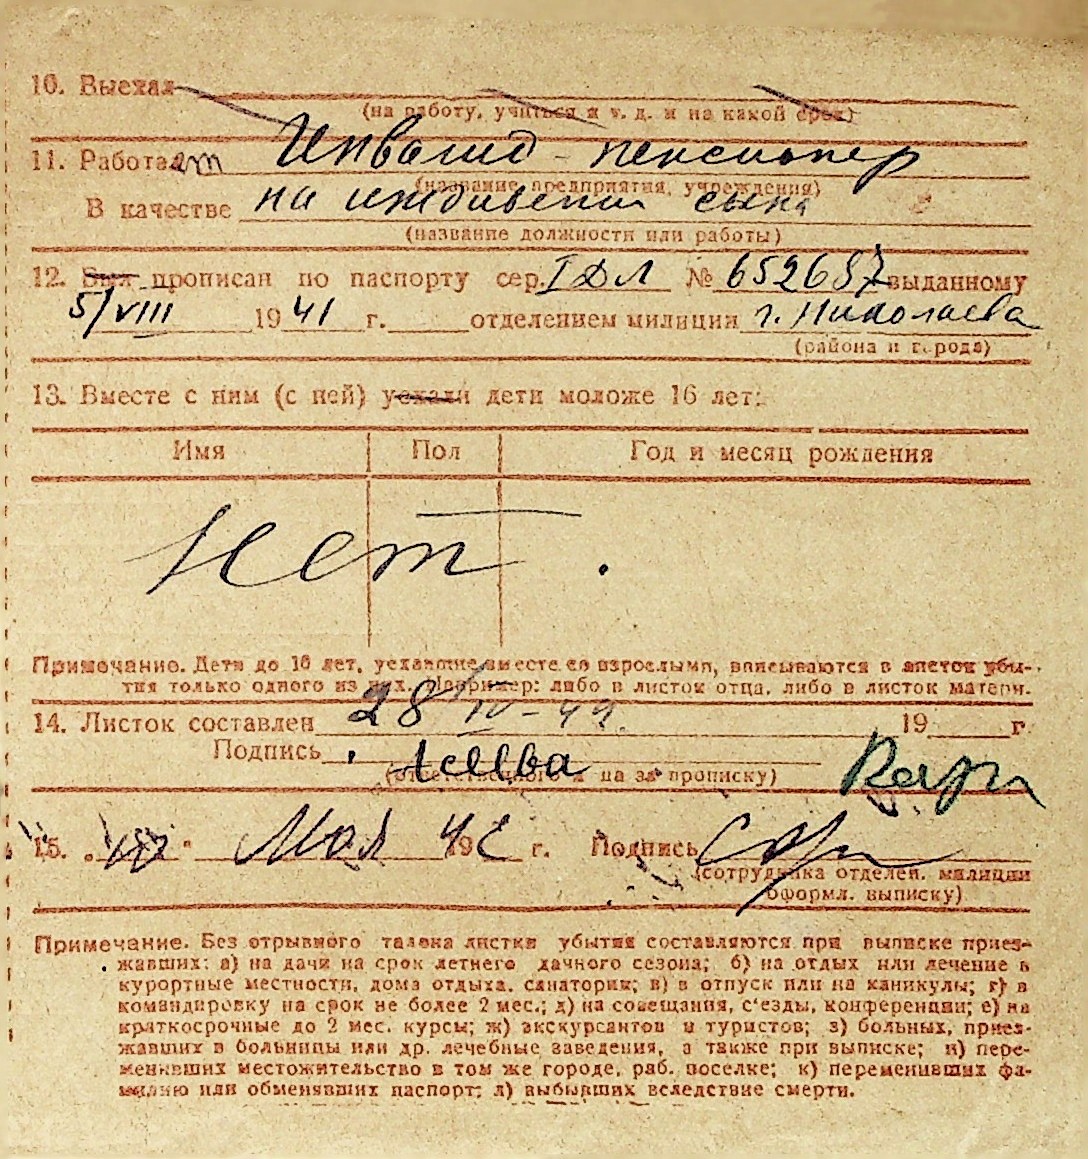 10. Выехал
(на работу, учиться и т. д. и на какой срок)
11. Работает Инвалид - пенсионер
(название предприятия, учреждения)
В качестве на иждивении сына
(название должности или работы)
12. Был прописан по паспорту сер. I ДЛ № 652687 выданному
5/VIII 1941 г. отделением милиции г. Николаева
(района и города)
13. Вместе с ним (с ней) уехали дети моложе 16 лет:
Имя Пол Год и месяц рождения
Нет.
Примечание. Дети до 16 лет, уехавшие вместе со взрослыми, вписываются в листок убы-
тия только одного из них. Например: либо в листок отца, либо в листок матери.
14. Листок составлен 28/IV-42. 19 г.
Подпись
(ответственного лица за прописку)
15. Мая 1942 г. Подпись
(сотрудника отделен. милиции
оформл. выписку)
Примечание. Без отрывного талона листки убытия составляются при выписке приез-
жавших: а) на дачи на срок летнего дачного сезона; б) на отдых или лечение в
курортные местности, дома отдыха, санатории; в) в отпуск или на каникулы; г) в
командировку на срок не более 2 мес.; д) на совещания, с'езды, конференции; е) на
краткосрочные до 2 мес. курсы; ж) экскурсантов и туристов; з) больных, приез-
жавших в больницы или др. лечебные заведения, а также при выписке; и) пере-
менивших местожительство в том же городе, раб. поселке; к) переменивших фа-
милию или обменявших паспорт; л) выбывших вследствие смерти.